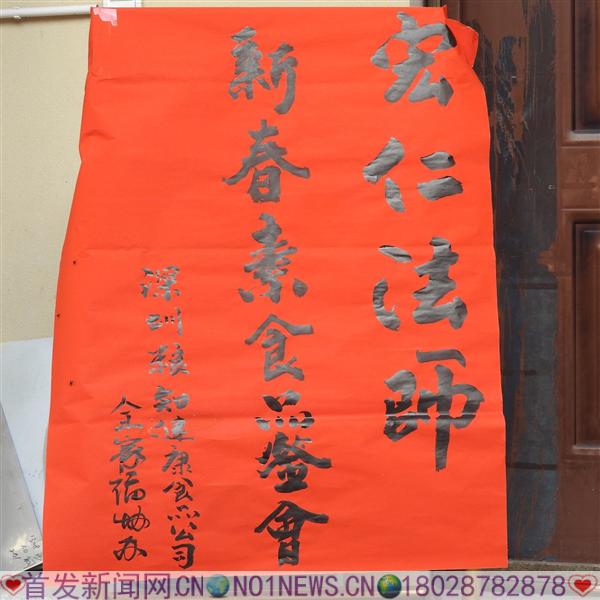 宏仁法師
新春素食品鉴會
深圳健康食品公司
全家福协办
首发新闻网.CN NO1NEWS.CN 18028782878